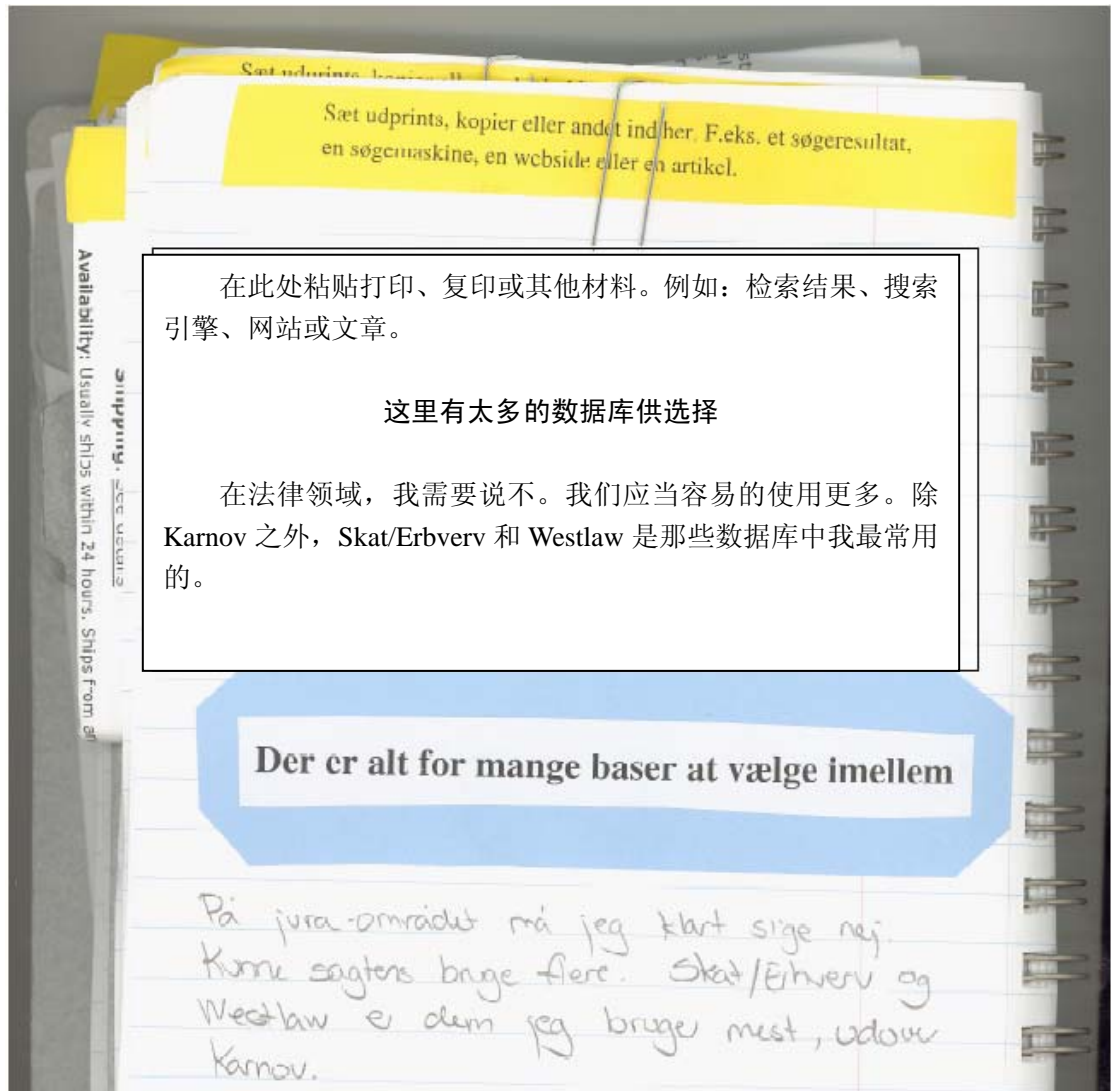 Sæt udprints, kopier eller andet ind her. F.eks. et søgeresultat,
en søgemaskine, en webside eller en artikel.
Availability: Usually ships within 24 hours. Ships from an
在此处粘贴打印、复印或其他材料。例如：检索结果、搜索
引擎、网站或文章。
这里有太多的数据库供选择
在法律领域，我需要说不。我们应当容易的使用更多。除
Karnov 之外，Skat/Erbverv 和 Westlaw 是那些数据库中我最常用
的。
Der er alt for mange baser at vælge imellem
På jura-området må jeg klart sige nej.
Kunne sagtens bruge flere. Skat/Erhverv og
Westlaw er dem jeg bruger mest, udover
Karnov.